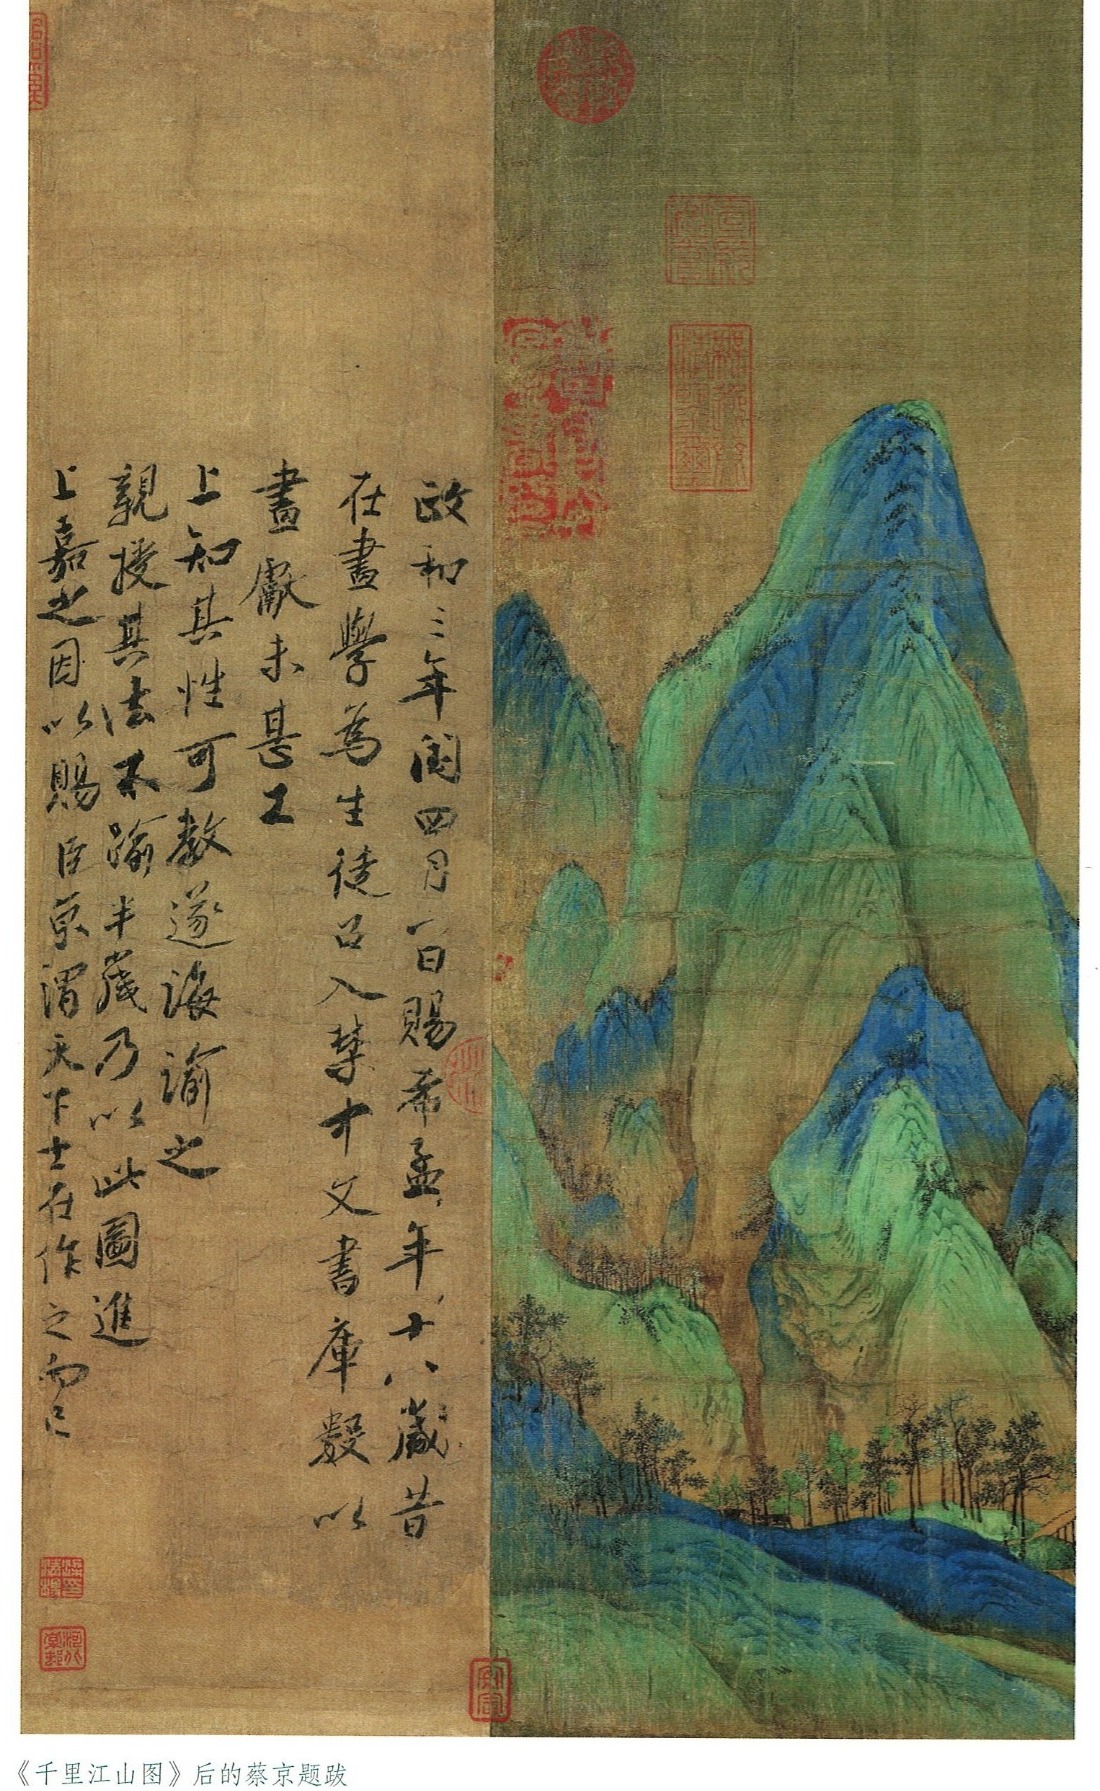 政和三年閏四月一日賜希孟年十八歲昔
在畫學為生徒召入禁中文書庫數以
畫獻未甚工
上知其性可教遂誨諭之
親授其法不踰半歲乃以此圖進
上嘉之因以賜臣京謂天下士在作之而已
《千里江山图》后的蔡京题跋